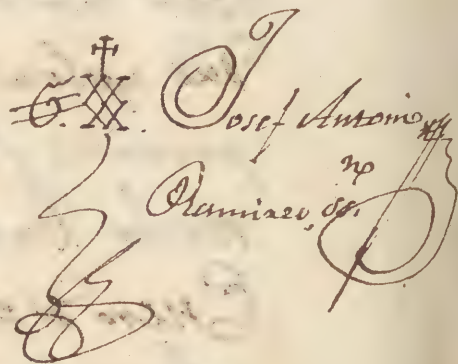 Josef Antonio
Ramirez